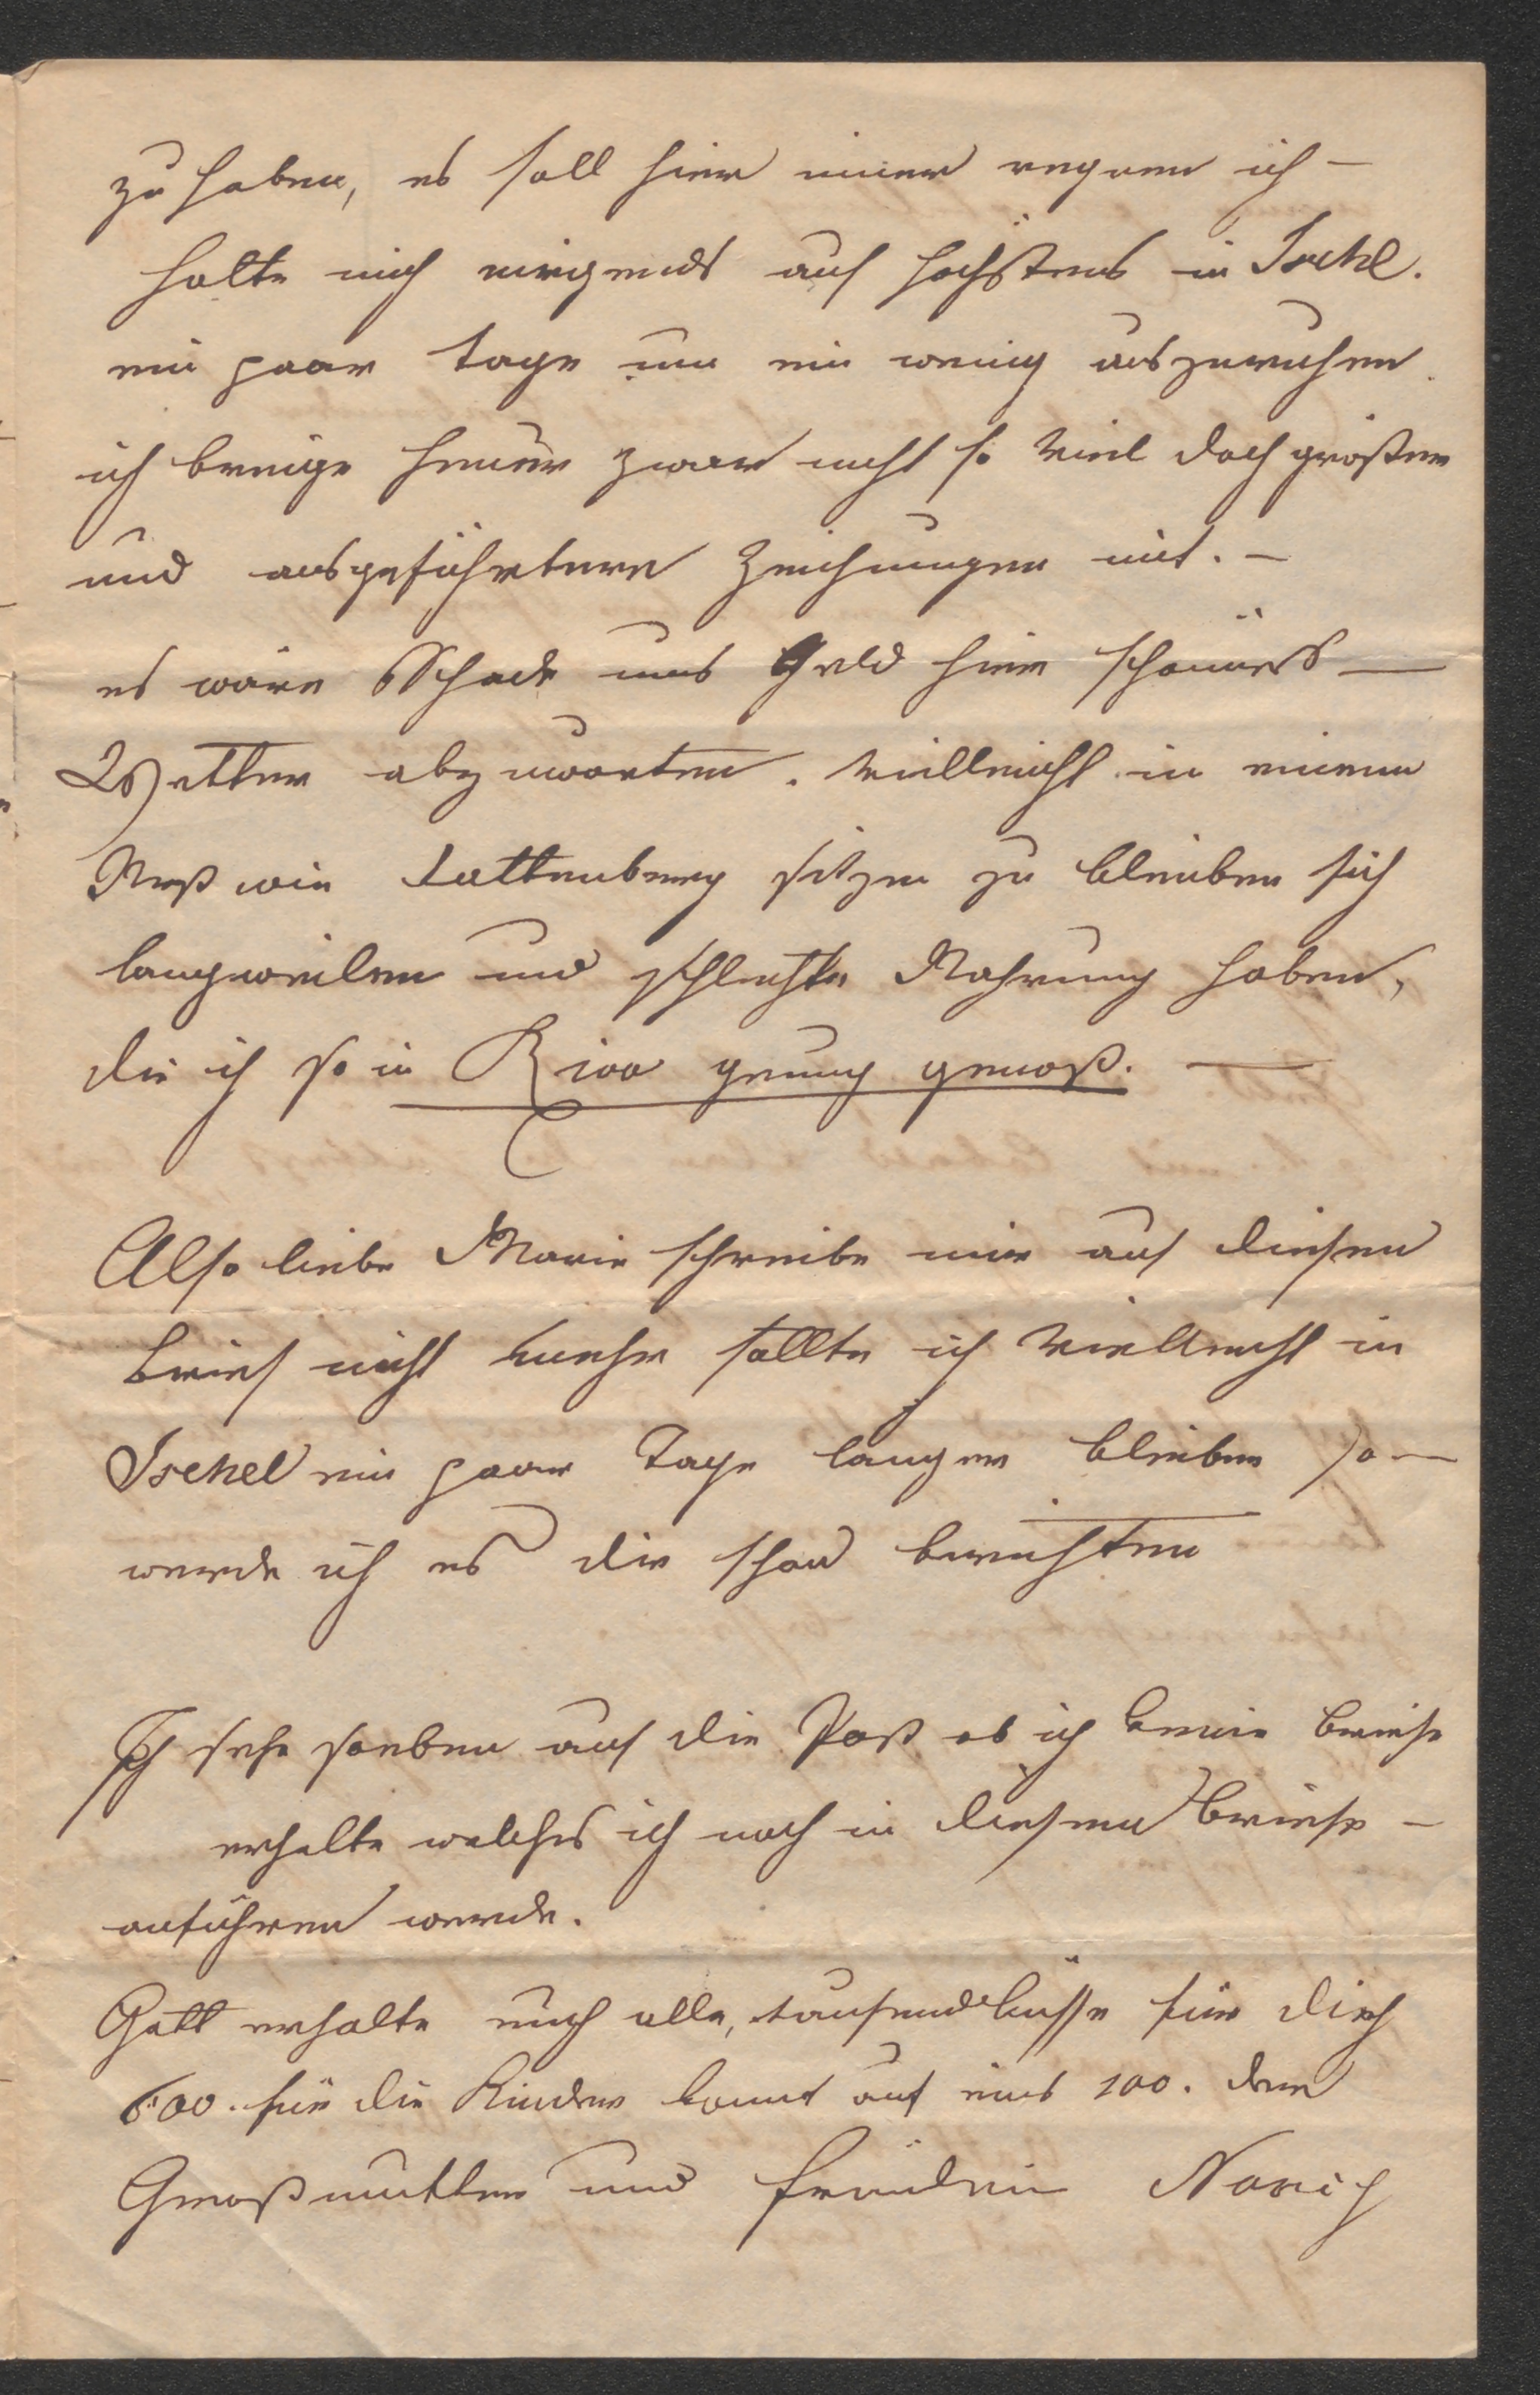 zu haben, es soll hier immer regnen ich –
halte mich nirgends auf höchstens in Ischl.
ein paar Tage um ein wenig auszuruhen.
ich bringe heuer zwar nicht so viel doch größere
und ausgeführtere Zeichnungen mit. –
es wäre Schade ums Geld hier schönes –
Wetter abzuwarten. vielleicht in einem
Nest wie Rattenberg sitzen zu bleiben sich
langweilen und schlechte Nahrung haben,
die ich so in Riva genug genoß. –
Also liebe Marie schreibe mir auf diesen
Brief nicht mehr sollte ich vielleicht in
Ischel ein paar Tage langer bleiben so –
werde ich es dir schon berichten
Ich sehe soeben auf die Post ob ich keine Briefe
erhalte welches ich noch in diesem Briefe –
anführen werde.
Gott erhalte euch alle, tausend Küsse für dich
600. für die Kinder komt auf eins 100. der
Großmutter und Fräulein